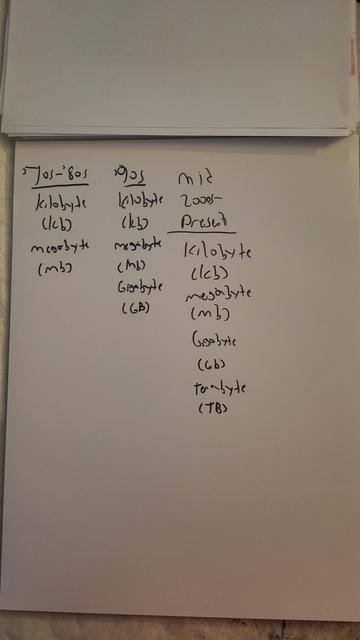 '70s-'80s
kilobyte
(kb)
megabyte
(mb)
'90s
kilobyte
(kb)
megabyte
(Mb)
Gigabyte
(GB)
mid
2000s-
Present
kilobyte
(kb)
megabyte
(mb)
Gigabyte
(Gb)
terabyte
(TB)